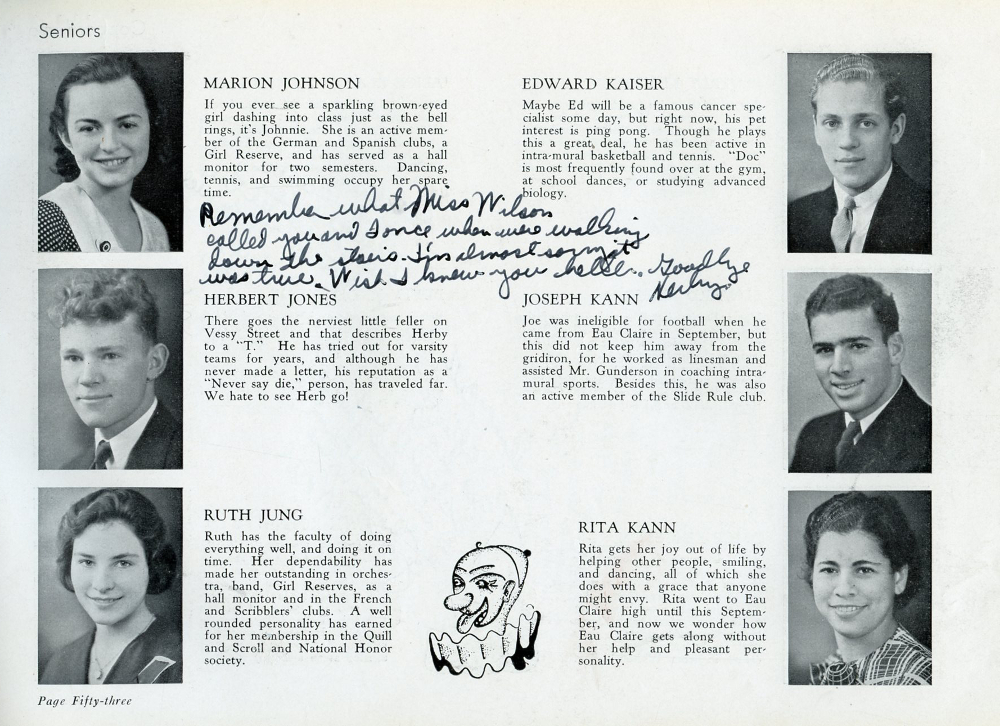 Seniors
MARION JOHNSON
If you ever see a sparkling brown-eyed
girl dashing into class just as the bell
rings, it's Johnnie. She is an active mem-
ber of the German and Spanish clubs, a
Girl Reserve, and has served as a hall
monitor for two semesters. Dancing,
tennis, and swimming occupy her spare
time.
EDWARD KAISER
Maybe Ed will be a famous cancer spe-
cialist some day, but right now, his pet
interest is ping pong. Though he plays
this a great deal, he has been active in
intra-mural basketball and tennis. "Doc"
is most frequently found over at the gym,
at school dances, or studying advanced
biology.
Remember what Miss Wilson
called you and I once when we were walking
down the stairs. I'm almost sorry it
was true. Wish I knew you better. Goodbye
Herby
HERBERT JONES
There goes the nerviest little feller on
Vessy Street and that describes Herby
to a "T." He has tried out for varsity
teams for years, and although he has
never made a letter, his reputation as a
"Never say die," person, has traveled far.
We hate to see Herb go!
JOSEPH KANN
Joe was ineligible for football when he
came from Eau Claire in September, but
this did not keep him away from the
gridiron, for he worked as linesman and
assisted Mr. Gunderson in coaching intra-
mural sports. Besides this, he was also
an active member of the Slide Rule club.
RUTH JUNG
Ruth has the faculty of doing
everything well, and doing it on
time. Her dependability has
made her outstanding in orches-
tra, band, Girl Reserves, as a
hall monitor and in the French
and Scribblers' clubs. A well
rounded personality has earned
for her membership in the Quill
and Scroll and National Honor
society.
RITA KANN
Rita gets her joy out of life by
helping other people, smiling,
and dancing, all of which she
does with a grace that anyone
might envy. Rita went to Eau
Claire high until this Septem-
ber, and now we wonder how
Eau Claire gets along without
her help and pleasant per-
sonality.
Page Fifty-three